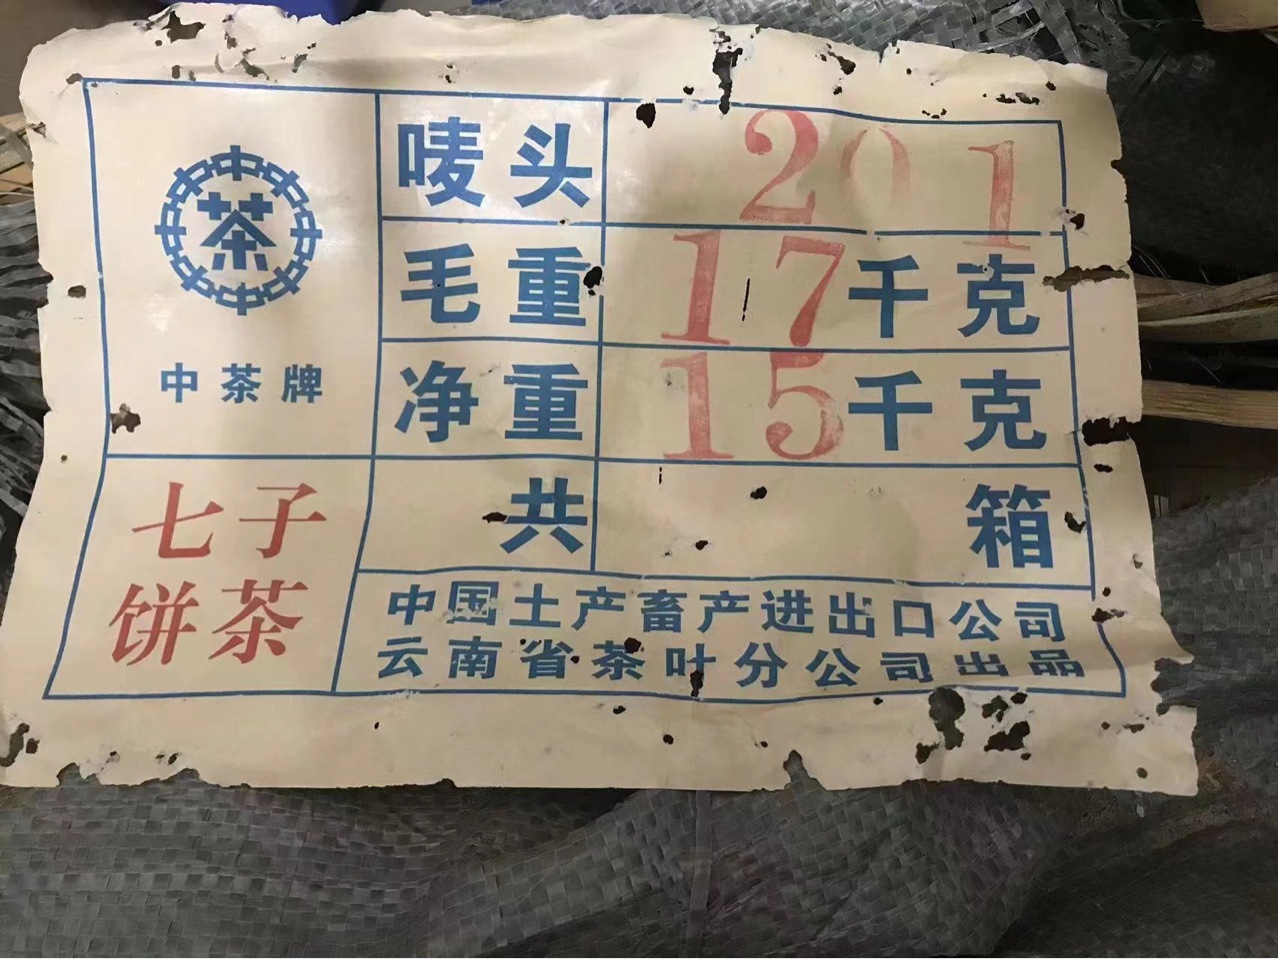 茶
中茶牌
七子
饼茶
唛头 201
毛重 17千克
净重 15千克
共 箱
中国土产畜产进出口公司
云南省茶叶分公司出品